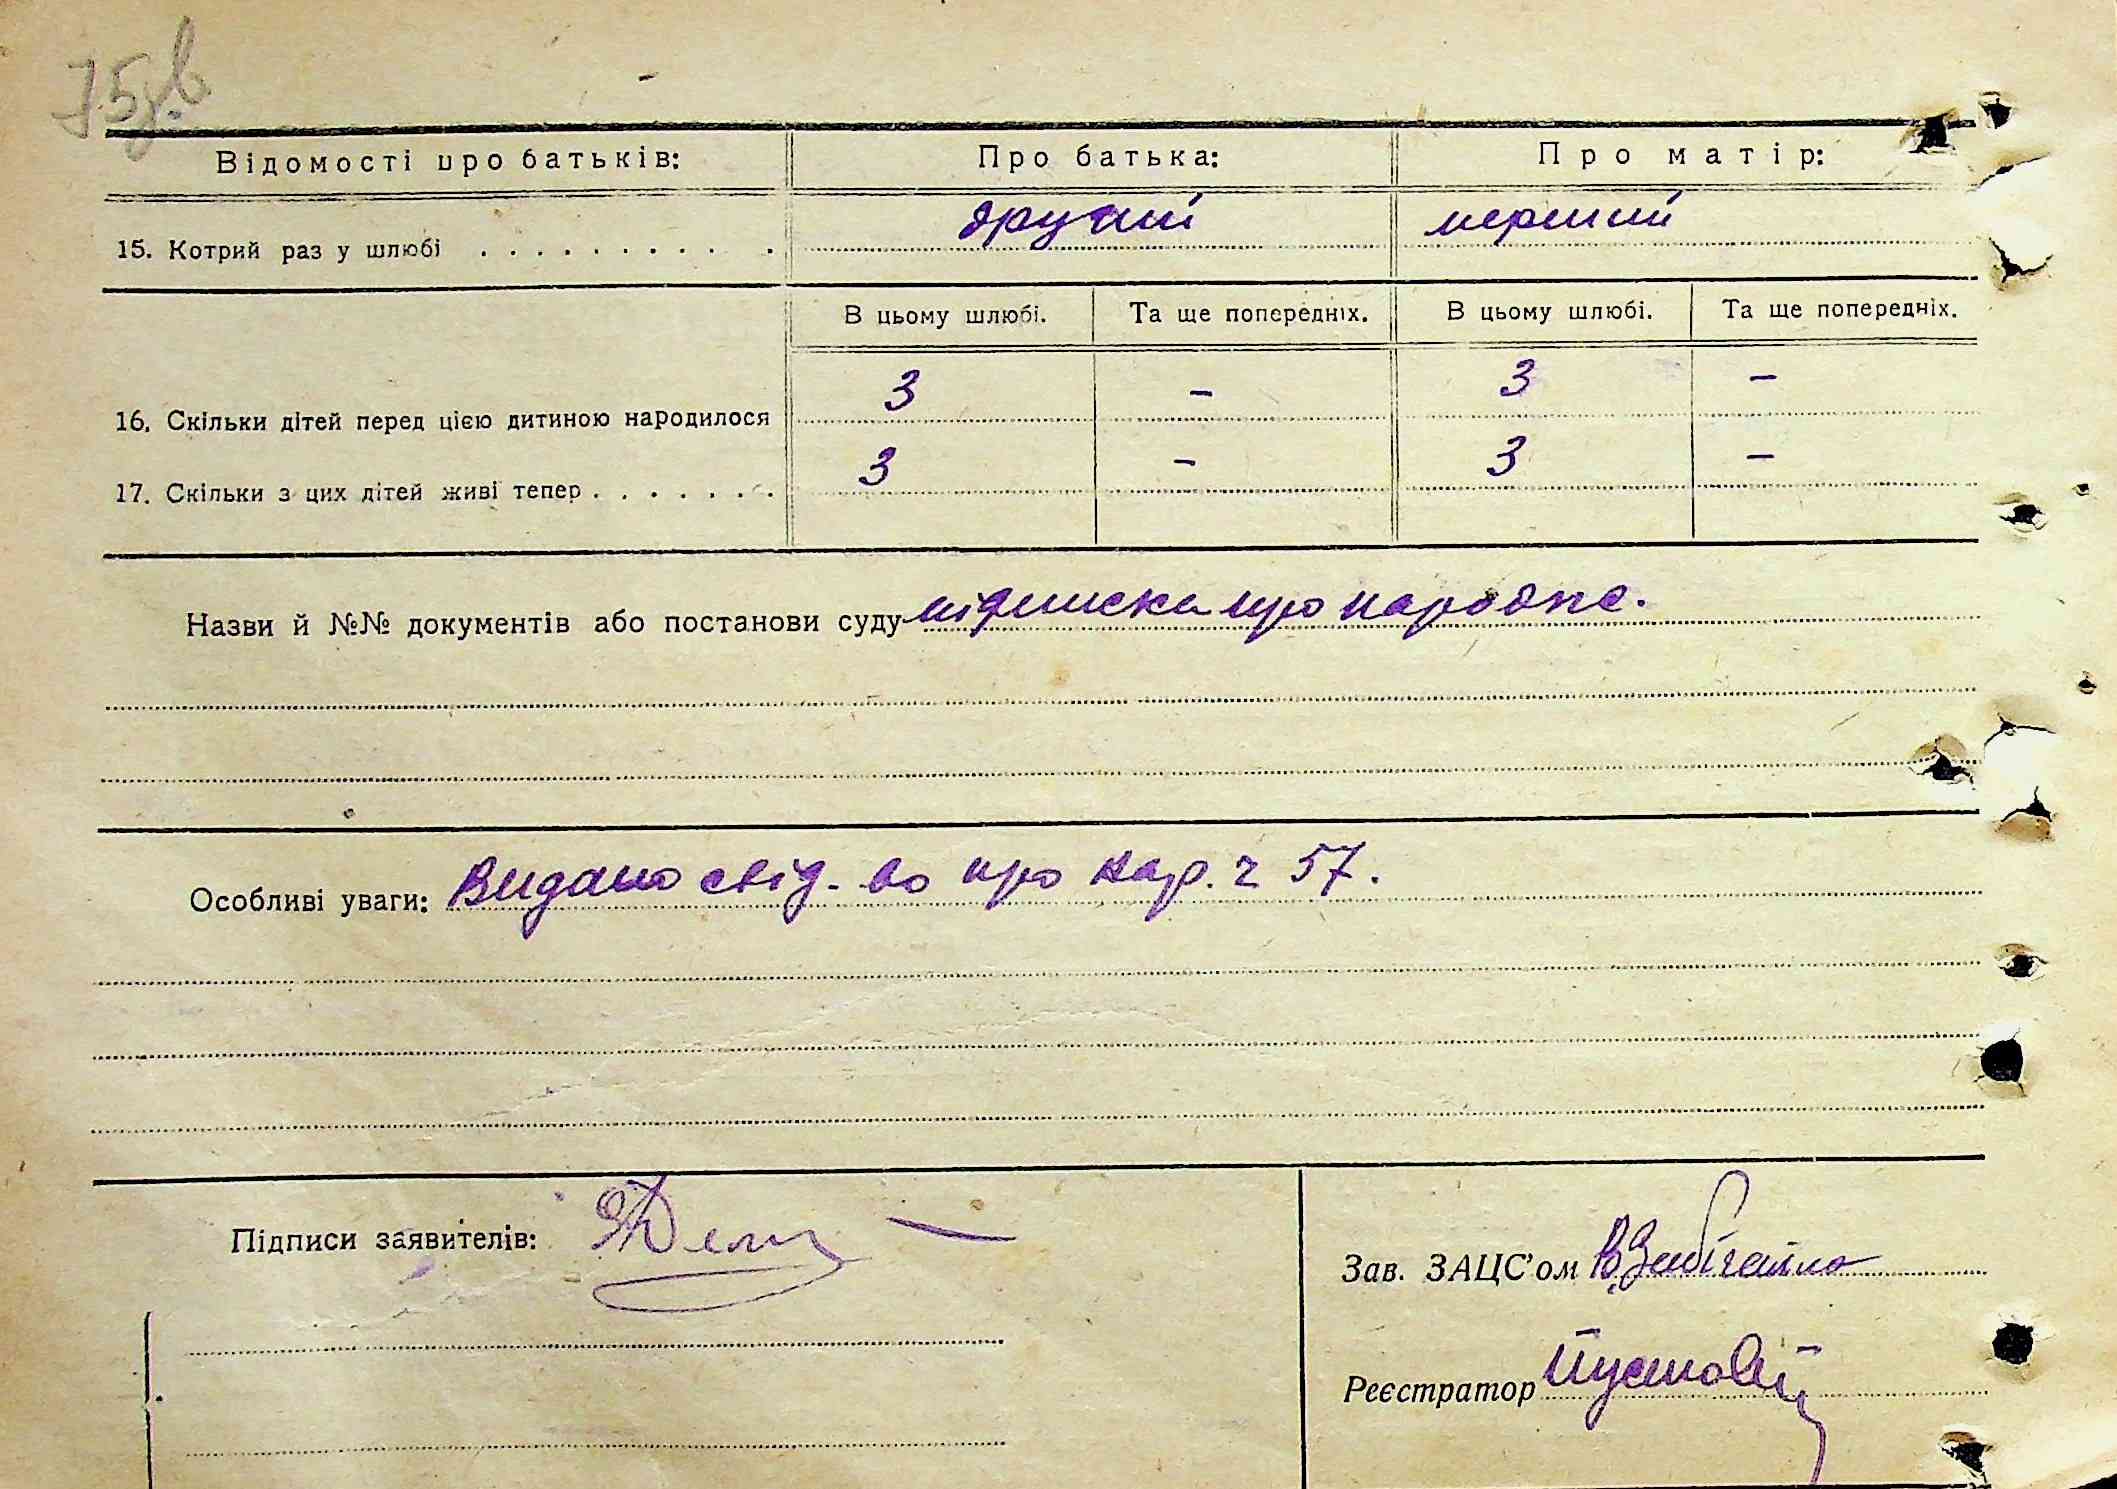 75
Відомості про батьків: Про батька: Про матір:
15. Котрий раз у шлюбі . . . . . . . . . . . другий перший
В цьому шлюбі. Та ще попередніх. В цьому шлюбі. Та ще попередніх.
16. Скільки дітей перед цією дитиною народилося 3 – 3 –
17. Скільки з цих дітей живі тепер . . . . . . . 3 – 3 –
Назви й №№ документів або постанови суду підписка про народже.
Особливі уваги: Видано свід-во про нар. ч 57.
Підписи заявителів:
Зав. ЗАЦС'ом
Реєстратор Пустовій